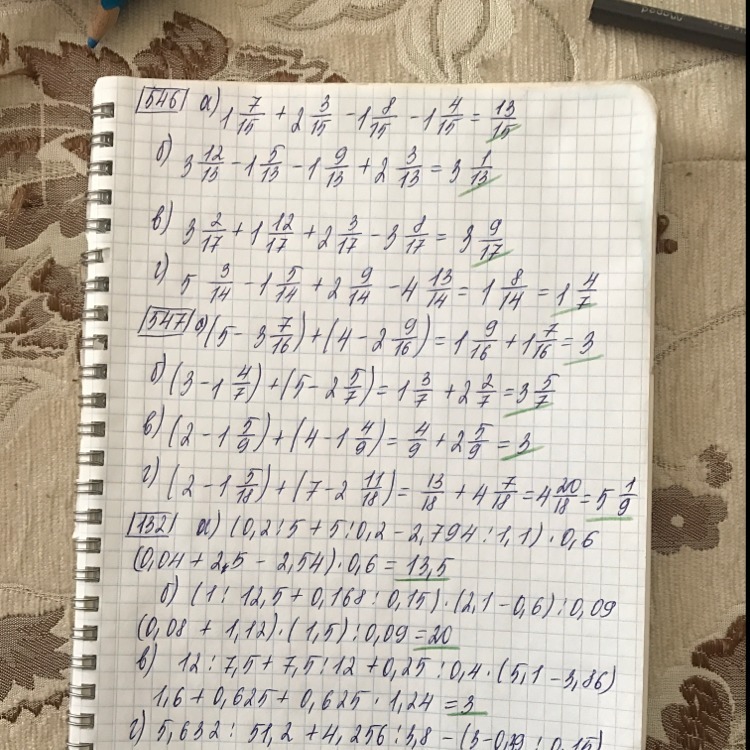 546 а) 1 7/15 + 2 3/15 - 1 8/15 - 1 4/15 = 13/15
б) 3 12/13 - 1 5/13 - 1 9/13 + 2 3/13 = 3 1/13
в) 3 2/17 + 1 12/17 + 2 3/17 - 3 8/17 = 3 9/17
г) 5 3/14 - 1 5/14 + 2 9/14 - 4 13/14 = 1 8/14 = 1 4/7
547 а) (5 - 3 7/16) + (4 - 2 9/16) = 1 9/16 + 1 7/16 = 3
б) (3 - 1 4/7) + (5 - 2 5/7) = 1 3/7 + 2 2/7 = 3 5/7
в) (2 - 1 5/9) + (4 - 1 4/9) = 4/9 + 2 5/9 = 3
г) (2 - 1 5/18) + (7 - 2 11/18) = 13/18 + 4 7/18 = 4 20/18 = 5 1/9
132 а) (0,2 : 5 + 5 : 0,2 - 2,794 : 1,1) · 0,6
(0,04 + 2,5 - 2,54) · 0,6 = 13,5
б) (1 : 12,5 + 0,168 : 0,15) · (2,1 - 0,6) : 0,09
(0,08 + 1,12) · (1,5) : 0,09 = 20
в) 12 : 7,5 + 7,5 : 12 + 0,25 : 0,4 · (5,1 - 3,86)
1,6 + 0,625 + 0,625 · 1,24 = 3
г) 5,632 : 51,2 + 4,256 : 3,8 - (3 - 0,19 : 0,15)